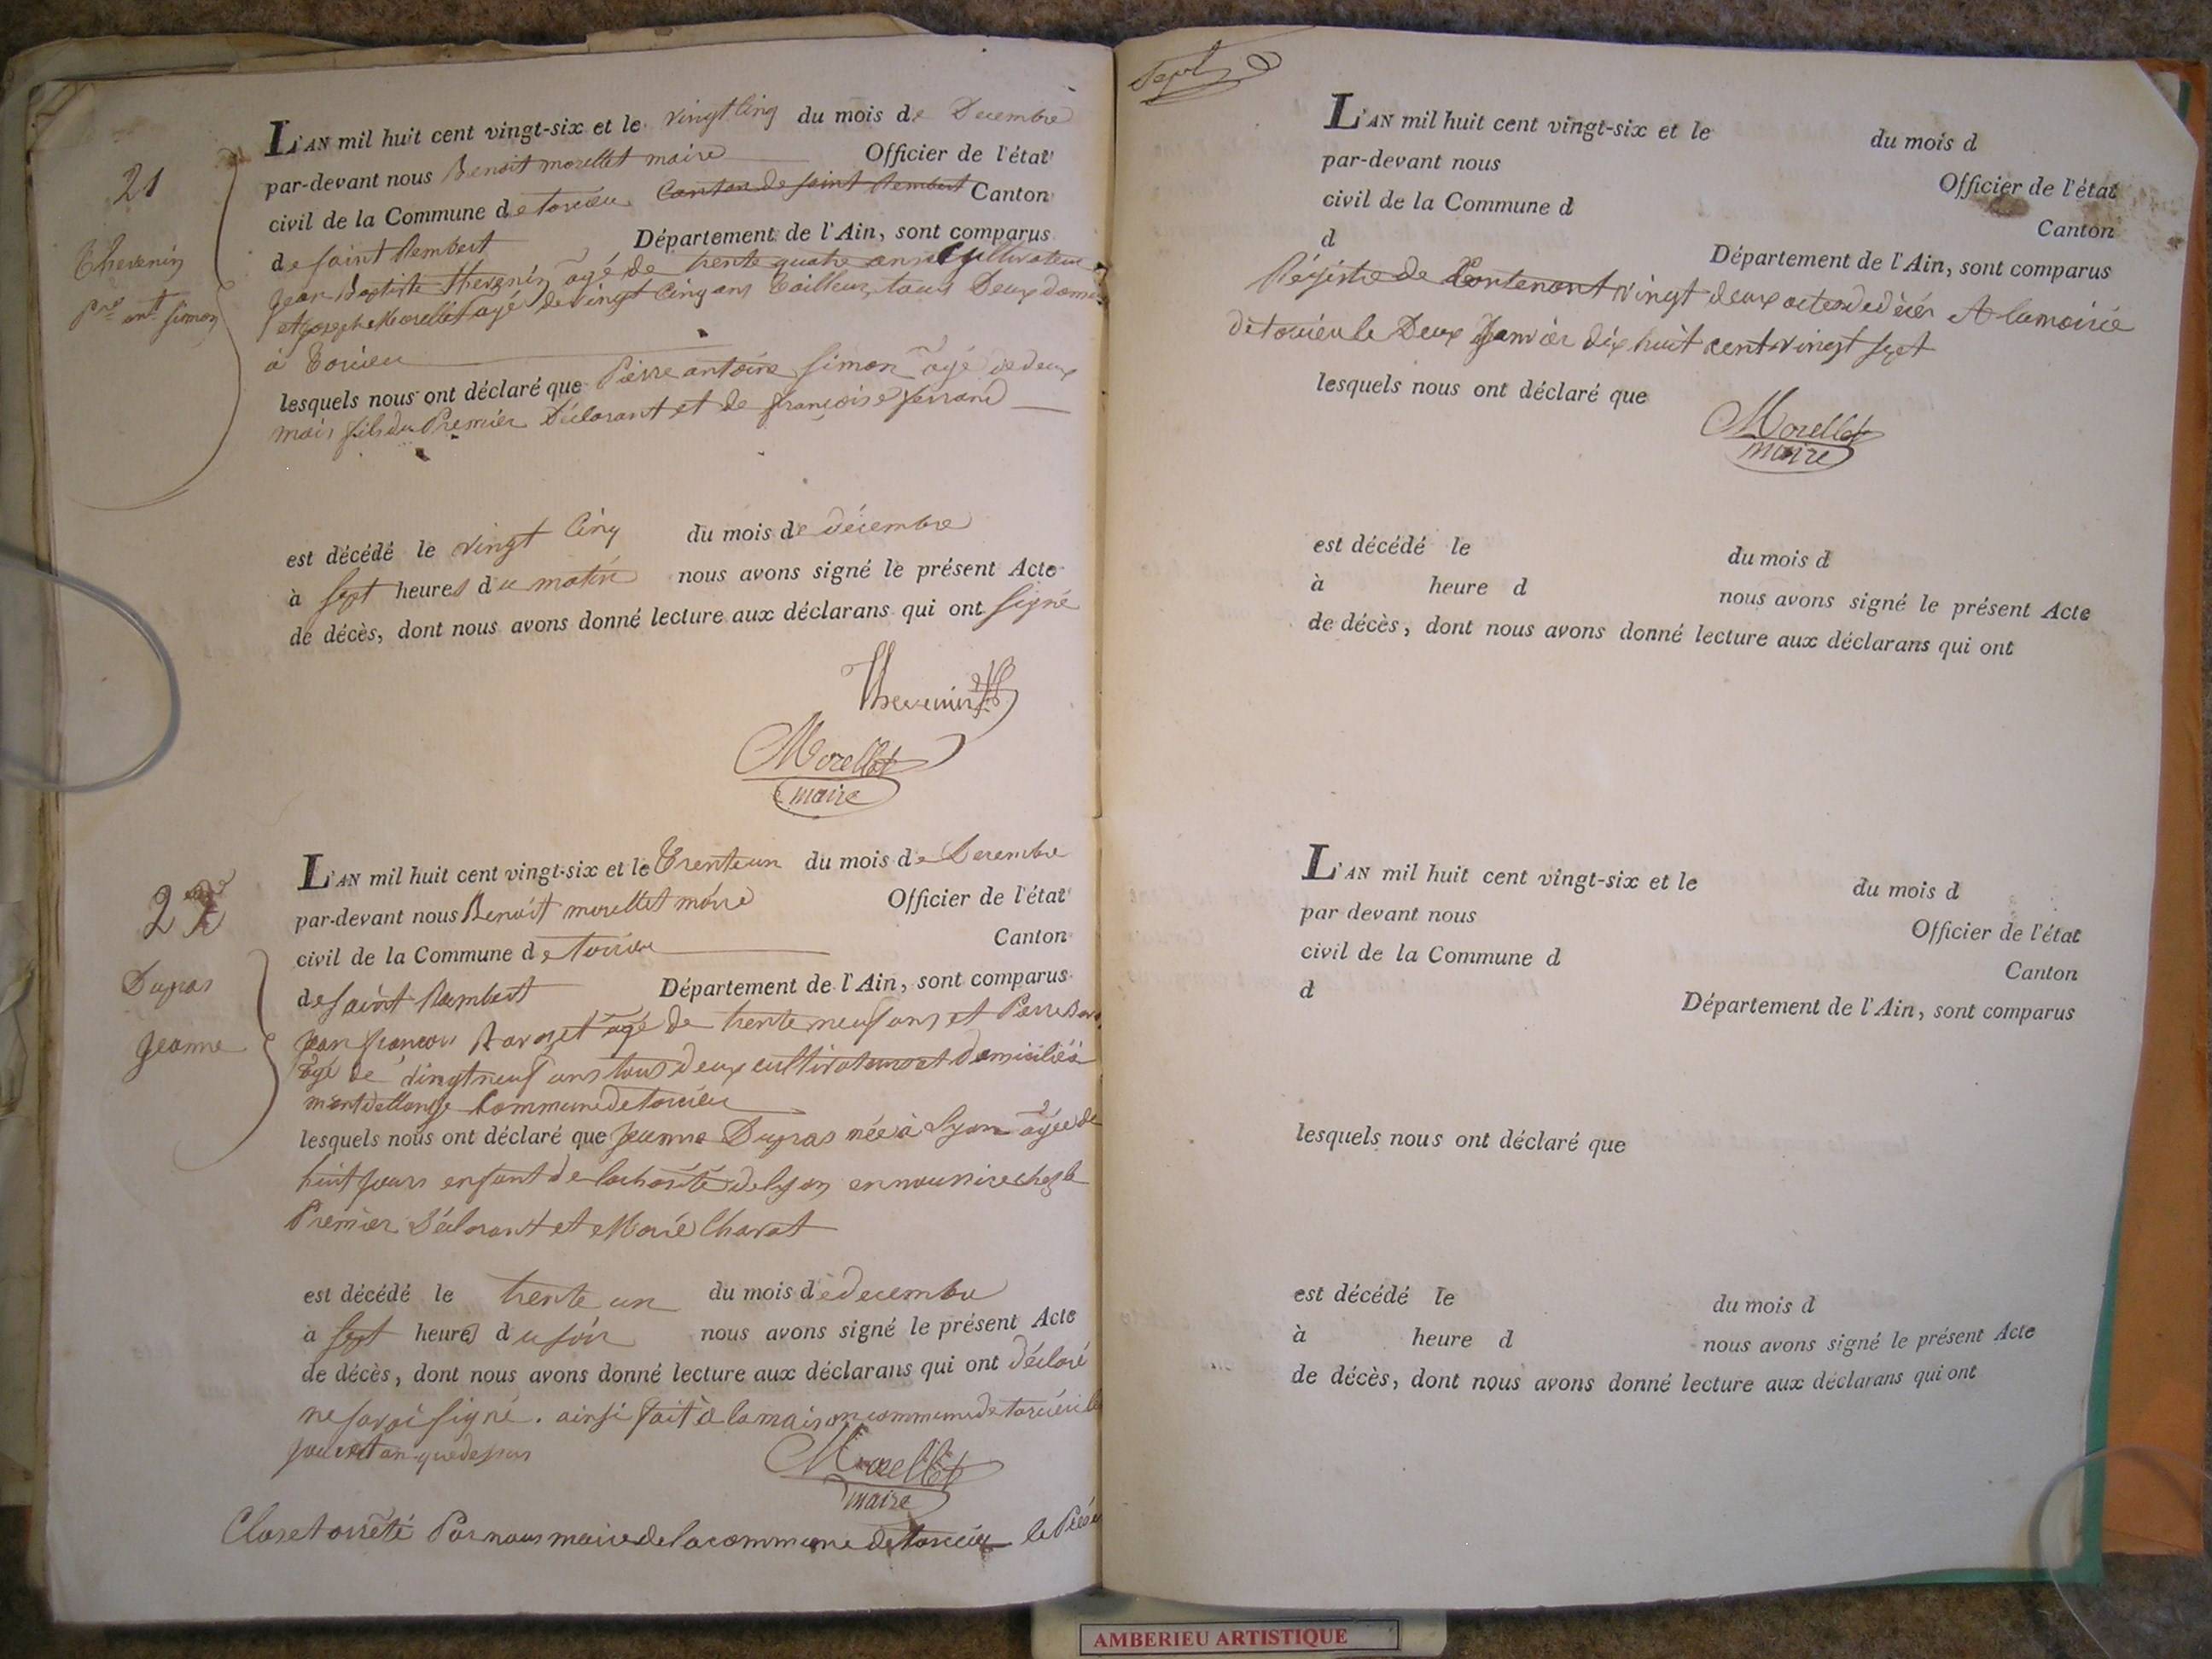 21
Thevenin
Pre ant Simon
L'AN mil huit cent vingt-six et le vingt cinq du mois de Decembre
par-devant nous Benoit morellet maire Officier de l'état
civil de la Commune de torcieu Canton de saint Rembert Canton
de saint Rembert Département de l'Ain, sont comparus
Jean Baptiste thevenin agé de trente quatre ans Cultivateur
et joseph Morellet agé de vingt cinq ans tailleur, tous Deux domi
à torcieu
lesquels nous ont déclaré que Pierre antoine Simon agé de deux
mois fils du Premier Déclarant et de françoise ferrand
est décédé le vingt Cinq du mois de décembre
à sept heures du matin nous avons signé le présent Acte
de décès, dont nous avons donné lecture aux déclarans qui ont signé
Thevenin
Morellet
maire
22
Dupras
Jeanne
L'AN mil huit cent vingt-six et le Trente un du mois de Decembre
par-devant nous Benoit morellet maire Officier de l'état
civil de la Commune de torcieu Canton
de saint Rambert Département de l'Ain, sont comparus
Jean francois Ravozet agé de trente neuf ans et Pierre
agé de vingt neuf ans tous deux cultivateurs et domiciliés à
Commune de torcieu
lesquels nous ont déclaré que jeanne Dupras née à Lyon agée de
huit jours enfant de la charité de lyon en nourrice chez le
Premier Déclarant et Marie Charat
est décédé le trente un du mois de decembre
à sept heures du soir nous avons signé le présent Acte
de décès, dont nous avons donné lecture aux déclarans qui ont déclaré
ne savoir signé. ainsi fait à la maison commune de torcieu le
jour et an que dessus
Morellet
maire
Clos et arrêté Par nous maire de la commune de torcieu le Prése
Sept
L'AN mil huit cent vingt-six et le du mois d
par-devant nous Officier de l'état
civil de la Commune d Canton
d Département de l'Ain, sont comparus
Régistre de Contenant vingt deux actes de décés A la mairie
de torcieu le Deux Janvier dix huit cent vingt sept
lesquels nous ont déclaré que
Morellet
maire
est décédé le du mois d
à heure d nous avons signé le présent Acte
de décès, dont nous avons donné lecture aux déclarans qui ont
L'AN mil huit cent vingt-six et le du mois d
par devant nous Officier de l'état
civil de la Commune d Canton
d Département de l'Ain, sont comparus
lesquels nous ont déclaré que
est décédé le du mois d
à heure d nous avons signé le présent Acte
de décès, dont nous avons donné lecture aux déclarans qui ont
AMBERIEU ARTISTIQUE